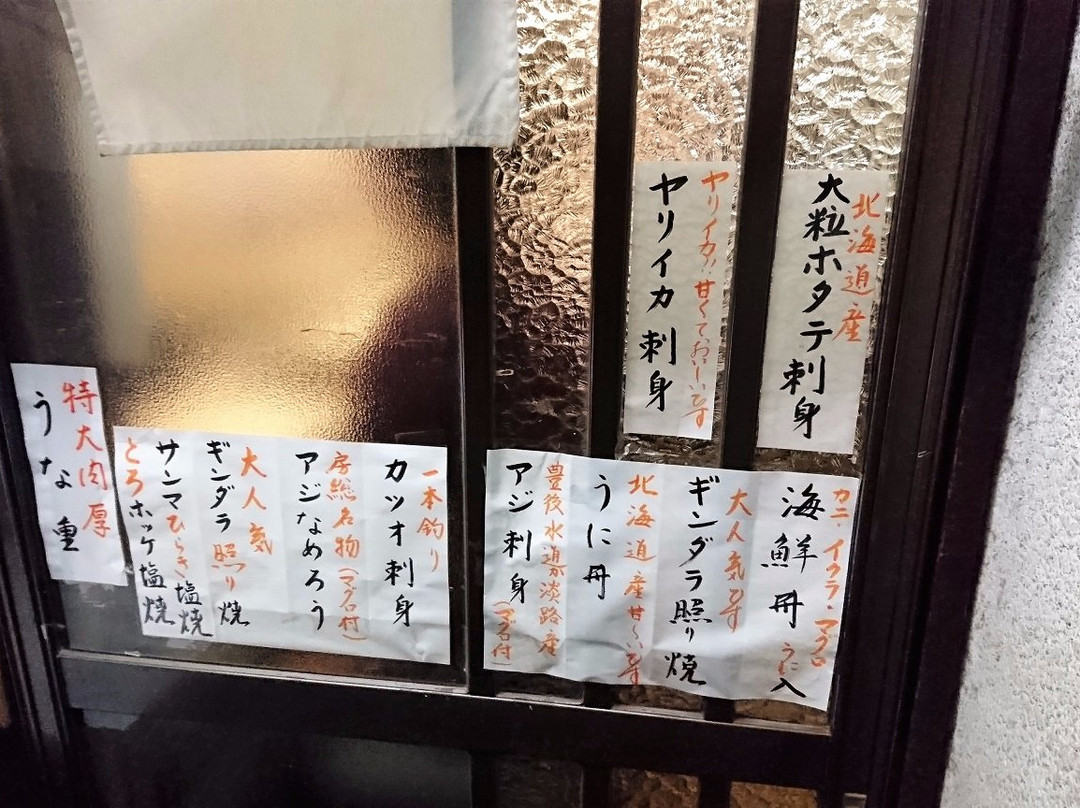 北海道産
大粒ホタテ刺身
ヤリイカ!!甘くておいしいです
ヤリイカ刺身
カニ・イクラ・マグロ
海鮮丼うに入
大人気です
ギンダラ照り焼
北海道産甘〜いです
うに丼
豊後水道か淡路産
アジ刺身(マグロ付)
一本釣り
カツオ刺身
房総名物(マグロ付)
アジなめろう
大人気
ギンダラ照り焼
サンマひらき塩焼
とろホッケ塩焼
特大肉厚
うな重